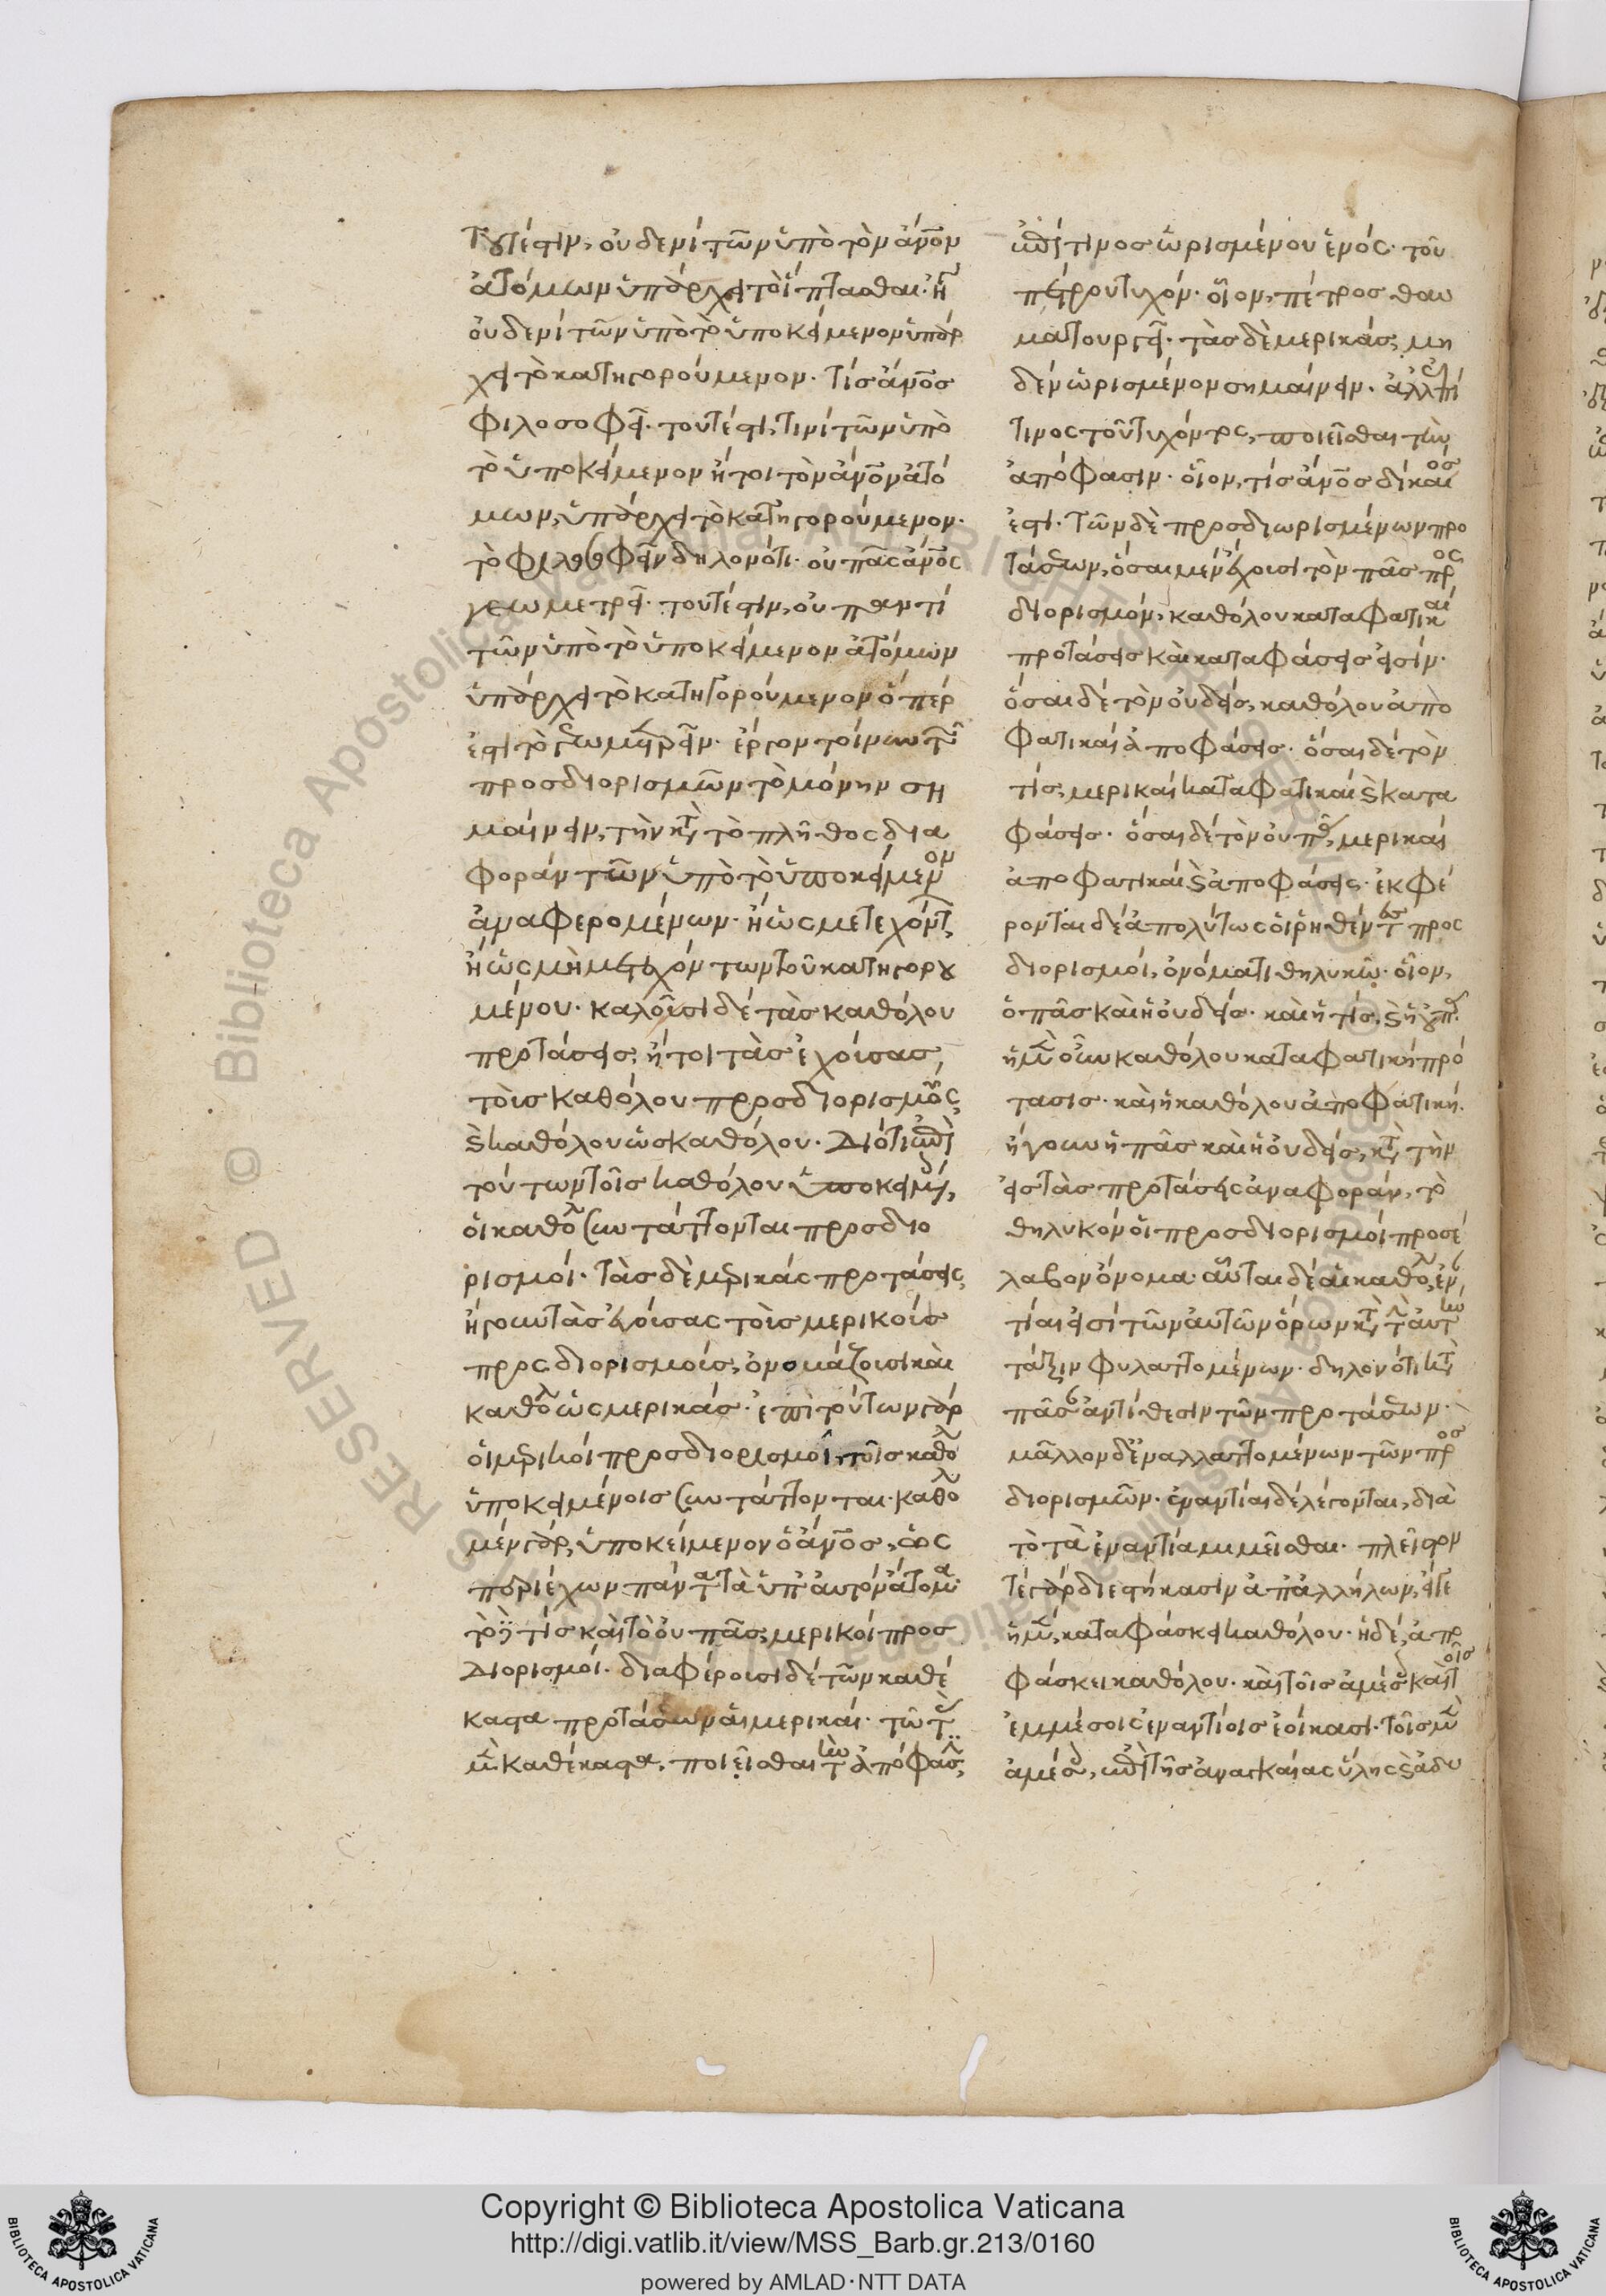 τουτέστιν, οὐδενὶ τῶν ὑπὸ τὸν ἄνον
ἀτόμων ὑπάρχει τὸ ἵπτασθαι· ἢ
οὐδενὶ τῶν ὑπὸ τὸ ὑποκείμενον ὑπάρ
χει τὸ κατηγορούμενον. τίς ἄνος
φιλοσοφεῖ. τουτέστι, τινὶ τῶν ὑπὸ
τὸ ὑποκείμενον ἤτοι τὸν ἄνον ἀτό
μων, ὑπάρχει τὸ κατηγορούμενον.
τὸ φιλοσοφεῖν δηλονότι. οὐ πᾶς ἄνος
γεωμετρεῖ. τουτέστιν, οὐ παντὶ
τῶν ὑπὸ τὸ ὑποκείμενον ἀτόμων
ὑπάρχει τὸ κατηγορούμενον ὅπερ
ἐστὶ τὸ γεωμετρεῖν. ἔργον τοίνυν τῶν
προσδιορισμῶν τὸ μόνην ση
μαίνειν, τὴν κατὰ τὸ πλῆθος δια
φορὰν τῶν ὑπὸ τὸ ὑποκείμενον
ἀναφερομένων. ἢ ὡς μετεχόντων
ἢ ὡς μὴ μετεχόντων τοῦ κατηγορου
μένου. καλοῦσι δὲ τὰς καθόλου
προτάσεις, ἤτοι τὰς ἐχούσας
τοῖς καθόλου προσδιορισμοῖς,
καὶ καθόλου ὡς καθόλου. Διότι ἐπὶ
τούτων τοῖς καθόλου ὑποκειμένοις,
οἱ καθόλου συντάττονται προσδιο
ρισμοί. τὰς δὲ μερικὰς προτάσεις,
ἤγουν τὰς ἐχούσας τοῖς μερικοῖς
προσδιορισμοῖς, ὀνομάζουσι καὶ
καθόλου ὡς μερικάς. ἐπὶ τούτων γὰρ
οἱ μερικοὶ προσδιορισμοὶ, τοῖς καθόλου
ὑποκειμένοις συντάττονται. καθόλου
μὲν γὰρ, ὑποκείμενον ὁ ἄνος, ὡς
περιέχων πάντα τὰ ὑπ' αὐτὸν ἄτομα.
τὸ δὲ τίς καὶ τὸ οὐ πᾶς, μερικοὶ προσ
Διορισμοί. διαφέρουσι δὲ τῶν καθέ
καστα προτάσεων αἱ μερικαί. τῷ τὰς
μὲν καθέκαστα, ποιεῖσθαι τὴν ἀπόφασιν,
ἐπί τινος ὡρισμένου ἑνός. τοῦ
πέτρου τυχόν. οἷον, πέτρος θαυ
ματουργεῖ. τὰς δὲ μερικάς, μη
δὲν ὡρισμένον σημαίνειν. ἀλλ' ἐπί
τινος τοῦ τυχόντος, ποιεῖσθαι τὴν
ἀπόφασιν. οἷον, τίς ἄνος δίκαιος
ἐστί. τῶν δὲ προσδιωρισμένων προ
τάσεων, ὅσαι μὲν ἔχουσι τὸν πᾶς προσ
διορισμόν, καθόλου καταφατικαὶ
προτάσεις καὶ καταφάσεις εἰσίν.
ὅσαι δὲ τὸν οὐδείς, καθόλου ἀπο
φατικαὶ ἀποφάσεις. ὅσαι δὲ τὸν
τίς, μερικαὶ καταφατικαὶ καὶ κατα
φάσεις. ὅσαι δὲ τὸν οὐ πᾶς, μερικαὶ
ἀποφατικαὶ καὶ ἀποφάσεις. ἐκφέ
ρονται δὲ ἀπολύτως οἱ ῥηθέντες προσ
διορισμοί, ὀνόματι θηλυκῷ. οἷον,
ὁ πᾶς καὶ ἡ οὐδείς. καὶ ἡ τίς, καὶ ἡ οὐ πᾶς.
ἡ μὲν οὖν καθόλου καταφατικὴ πρό
τασις. καὶ ἡ καθόλου ἀποφατική.
ἤγουν ἡ πᾶς καὶ ἡ οὐδείς, κατὰ τὴν
εἰς τὰς προτάσεις ἀναφοράν, τὸ
θηλυκὸν οἱ προσδιορισμοὶ προσέ
λαβον ὄνομα. αὗται δὲ αἱ καθόλου, ἐναν
τίαι εἰσὶ τῶν αὐτῶν ὅρων κατὰ τὴν αὐτὴν
τάξιν φυλαττομένων. δηλονότι κατὰ
πᾶσαν ἀντίθεσιν τῶν προτάσεων.
μᾶλλον δὲ ἐναλλαττομένων τῶν προσ
διορισμῶν. ἐναντίαι δὲ λέγονται, διὰ
τὸ τὰ ἐναντία μιμεῖσθαι. πλεῖστον
τε γὰρ διεστήκασιν ἀπ' ἀλλήλων, εἴγε
ἡ μὲν, καταφάσκει καθόλου. ἡ δὲ, ἀπο
φάσκει καθόλου. καὶ τοῖς ἀμέσοις καὶ τοῖς
ἐμμέσοις ἐναντίοις ἐοίκασι. τοῖς μὲν
ἀμέσοις, ἐπὶ τῆς ἀναγκαίας ὕλης καὶ ἀδυ
Copyright © Biblioteca Apostolica Vaticana
http://digi.vatlib.it/view/MSS_Barb.gr.213/0160
powered by AMLAD·NTT DATA